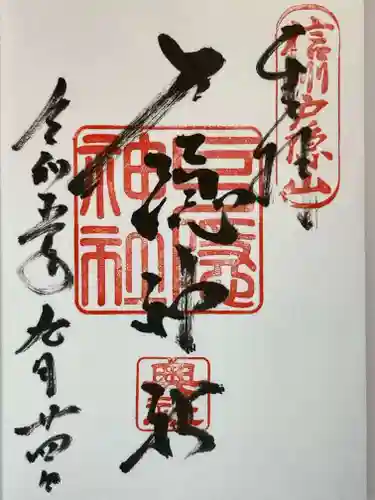 奉拝
信州戸隠山
戸隠神社
戸隠神社
奥社
令和五年九月廿四日